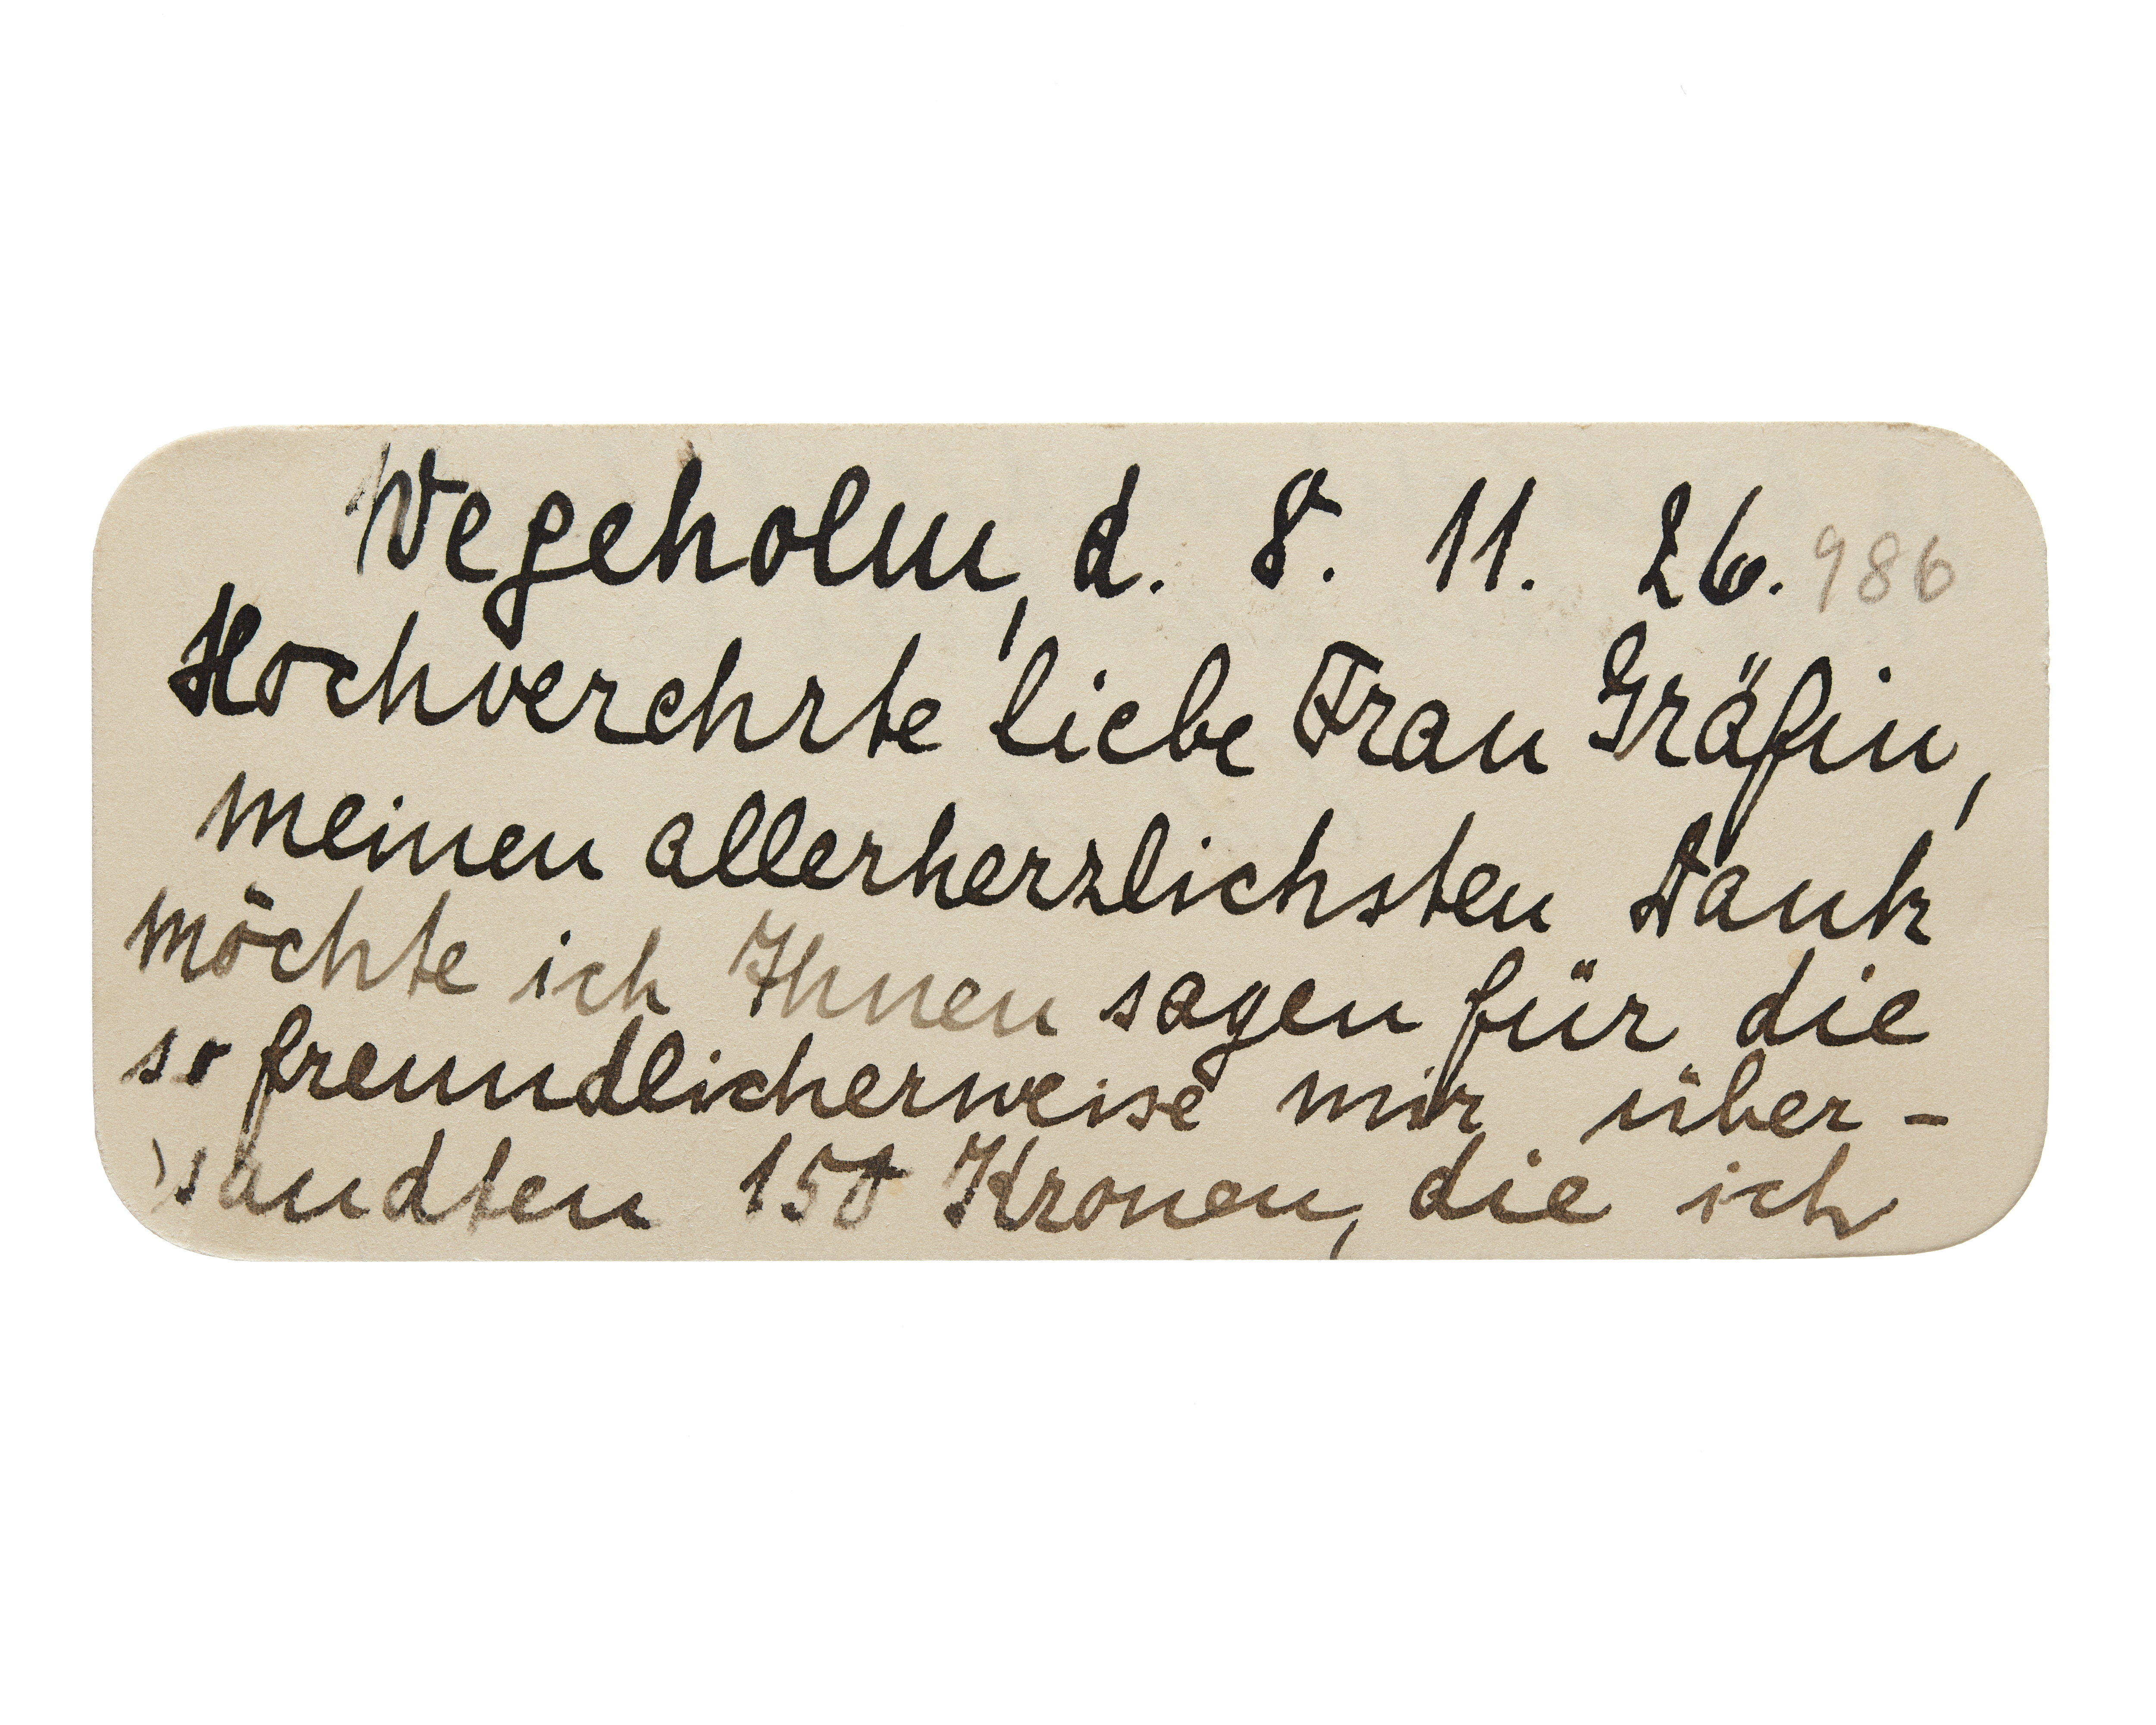 Vegeholm, d. 8. 11. 26. 986
Hochverehrte liebe Frau Gräfin,
meinen allerherzlichsten Dank
möchte ich Ihnen sagen für die
so freundlicherweise mir über-
sandten 150 Kronen, die ich